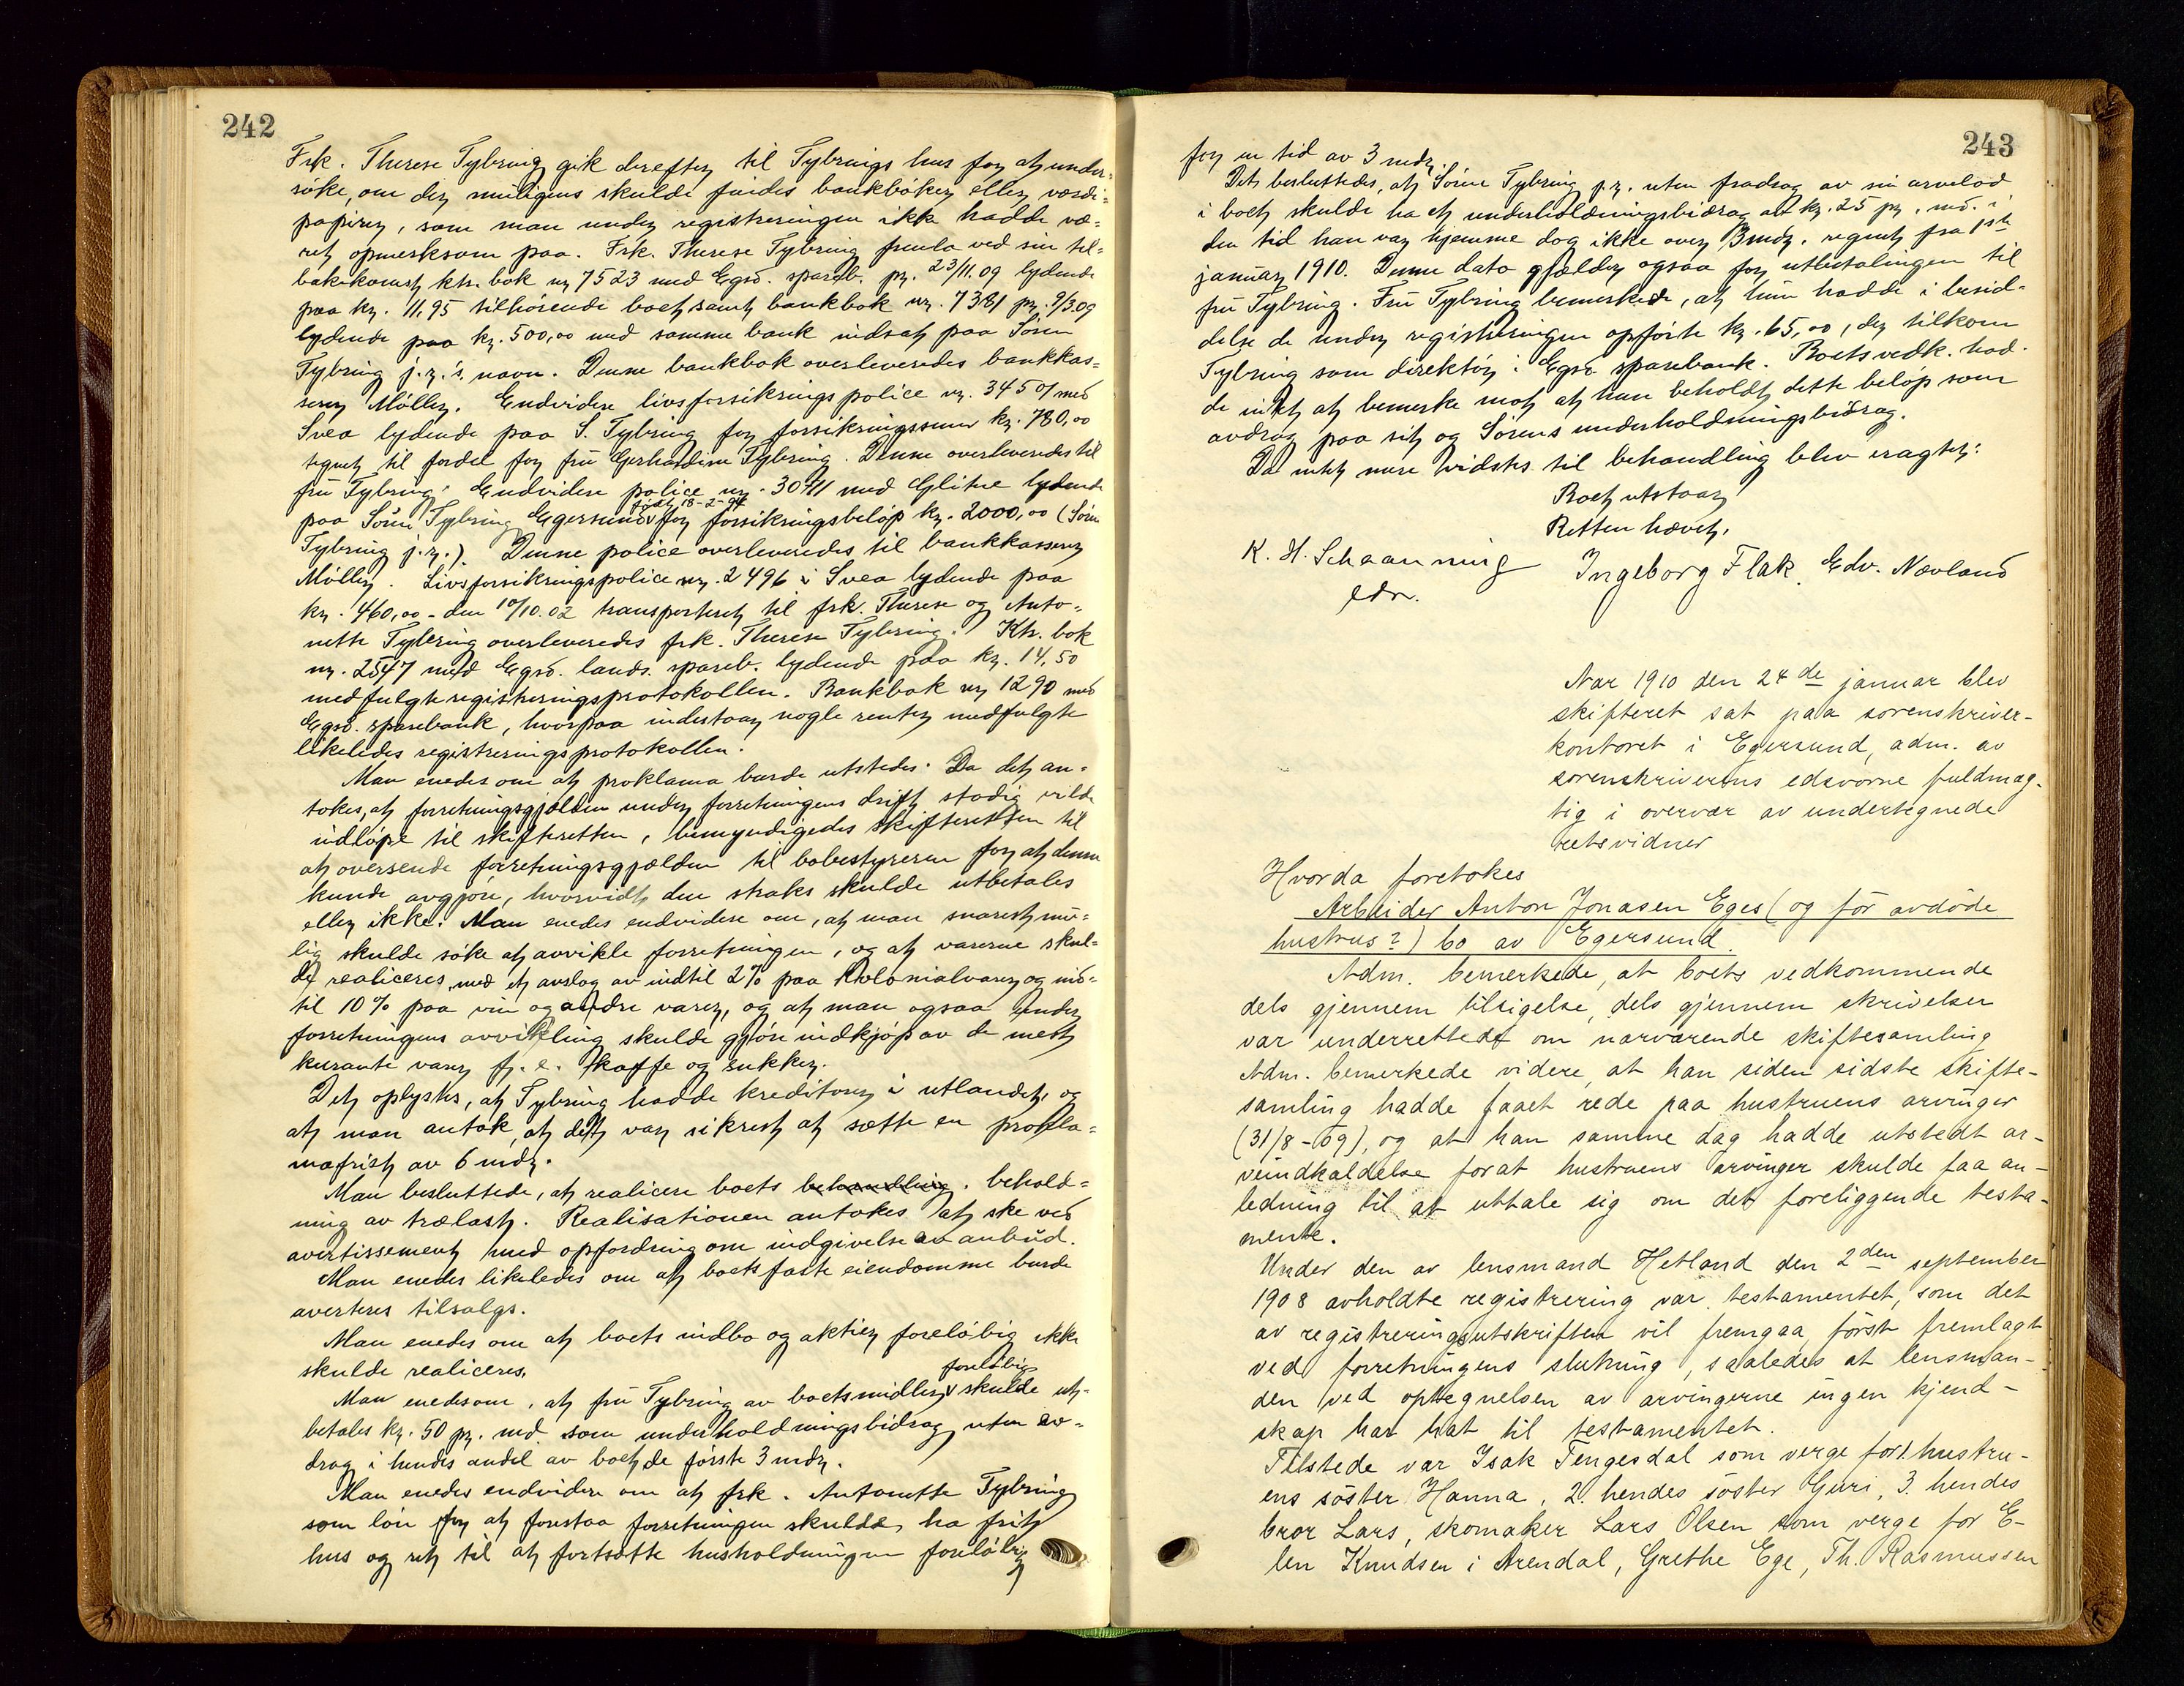 242
Frk. Therese Tybring gik derefter til Tybrings hus for at under-
søke, om der muligens skulde findes bankbøker eller værdi-
papirer, som man under registreringen ikke hadde væ-
ret opmerksom paa. Frk. Therese Tybring fremla ved sin til-
bakekomst ktr. bok nr 7523 med Egsd. spareb. pr. 23/11.09 lydende
paa kr. 11,95 tilhørende boet, samt bankbok nr. 7381 pr. 9/3 09
lydende paa kr. 500,00 med samme bank indsat paa Søren
Tybring j.r.'s navn. Denne bankbok overleveredes bankkas-
serer Møller. Endvidere livsforsikringspolice nr. 34507 med
Svea lydende paa S. Tybring for forsikringssum kr. 780,00
tegnet til fordel for fru Gerhardine Tybring. Denne overleveredes til
fru Tybring. Endvidere police nr. 30711 med Glitne lydende
født 18-2-94
paa Søren Tybring Egersund for forsikringsbeløp kr. 2000,00 (Søren
Tybring j.r.). Denne police overleveredes til bankkasserer
Møller. Livsforsikringspolice nr. 2496 i Svea lydende paa
kr. 460,00 - den 10/10.02 transporteret til frk. Therese og Anto-
nette Tybring overleveredes frk. Therese Tybring. Ktr. bok
nr. 2547 med Egsd. lands. spareb. lydende paa kr. 14,50
medfulgte registreringsprotokollen. Bankbok nr 1290 med
Egsd. sparebank, hvorpaa indestaar nogle renter medfulgte
likeledes registreringsprotokollen.
Man enedes om at proklama burde utstedes. Da det an-
tokes, at forretningsgjælden under forretningens drift stadig vilde
indløpe til skifteretten, bemyndigedes skifteretten til
at oversende forretningsgjælden til bobestyreren for at denne
kunde avgjøre, hvorvidt den straks skulde utbetales
eller ikke. Man enedes endvidere om, at man snarest mu-
lig skulde søke at avvikle forretningen, og at varerne skul-
de realiceres, med et avslag av indtil 2% paa kolonialvarer og ind-
til 10% paa vin og andre varer, og at man ogsaa under
forretningens avvikling skulde gjøre indkjøp av de mest
kurante varer f. e. kaffe og sukker.
Det oplystes, at Tybring hadde kreditorer i utlandet, og
at man antok, at det var sikrest at sætte en prokla-
mafrist av 6 mdr.
Man besluttede, at realicere boets behandling. behold-
ning av trælast. Realisationen antokes at ske ved
avertissement med opfordring om indgivelse av anbud.
Man enedes likeledes om at boets faste eiendomme burde
averteres tilsalgs.
Man enedes om at boets indbo og aktier foreløbig ikke
skulde realiceres.
foreløbig
Man enedes om, at fru Tybring av boets midler skulde ut-
betales kr. 50 pr. md. som underholdningsbidrag uten av-
drag i hendes andel av boet de første 3 mdr.
Man enedes endvidere om at frk. Antonette Tybring
som løn for at forestaa forretningen skulde ha frit
hus og ret til at fortsætte husholdningen foreløbig
243
for en tid av 3 mdr.
Det besluttedes, at Søren Tybring j.r. uten fradrag av sin arvelod
i boet skulde ha et underholdningsbidrag av kr. 25 pr. md. i
den tid han var hjemme dog ikke over 3 mdr. regnet fra 1ste
januar 1910. Denne dato gjælder ogsaa for utbetalingen til
fru Tybring. Fru Tybring bemerkede, at hun hadde i besid-
delse de under registreringen opførte kr. 65,00, der tilkom
Tybring som direktør i Egsd sparebank. Boets vedk. had-
de intet at bemerke mot at hun beholdt dette beløp som
avdrag paa sit og Sørens underholdningsbidrag.
Da intet mere vidstes til behandling blev eragtet:
Boet utstaar
Retten hævet.
K. H. Schaanning Ingeborg Flak. Edv. Nævland
edsv.
Aar 1910 den 24de januar blev
skifteret sat paa sorenskriver-
kontoret i Egersund, adm. av
sorenskriverens edsvorne fuldmæg-
tig i overvær av undertegnede
retsvidner
Hvorda foretokes
Arbeider Anton Jonasen Eges (og før avdøde
hustrus?) bo av Egersund.
Adm. bemerkede, at boets vedkommende
dels gjennem tilsigelse, dels gjennem skrivelser
var underrettede om nærværende skiftesamling
Adm. bemerkede videre, at han siden sidste skifte-
samling hadde faaet rede paa hustruens arvinger
(31/8-09), og at han samme dag hadde utstedt ar-
veindkaldelse forat hustruens arvinger skulde faa an-
ledning til at uttale sig om det foreliggende testa-
mente.
Under den av lensmand Hetland den 2den september
1908 avholdte registrering var testamentet, som det
av registreringsutskriften vil fremgaa, først fremlagt
ved forretningens slutning, saaledes at lensman-
den ved optegnelsen av arvingerne ingen kjend-
skap har hat til testamentet.
Tilstede var Isak Tengesdal som verge for 1. hustru-
ens søster Hanna, 2. hendes søster Guri, 3. hendes
bror Lars, skomaker Lars Olsen som verge for E-
len Knudsen i Arendal, Grethe Ege, Th. Rasmussen